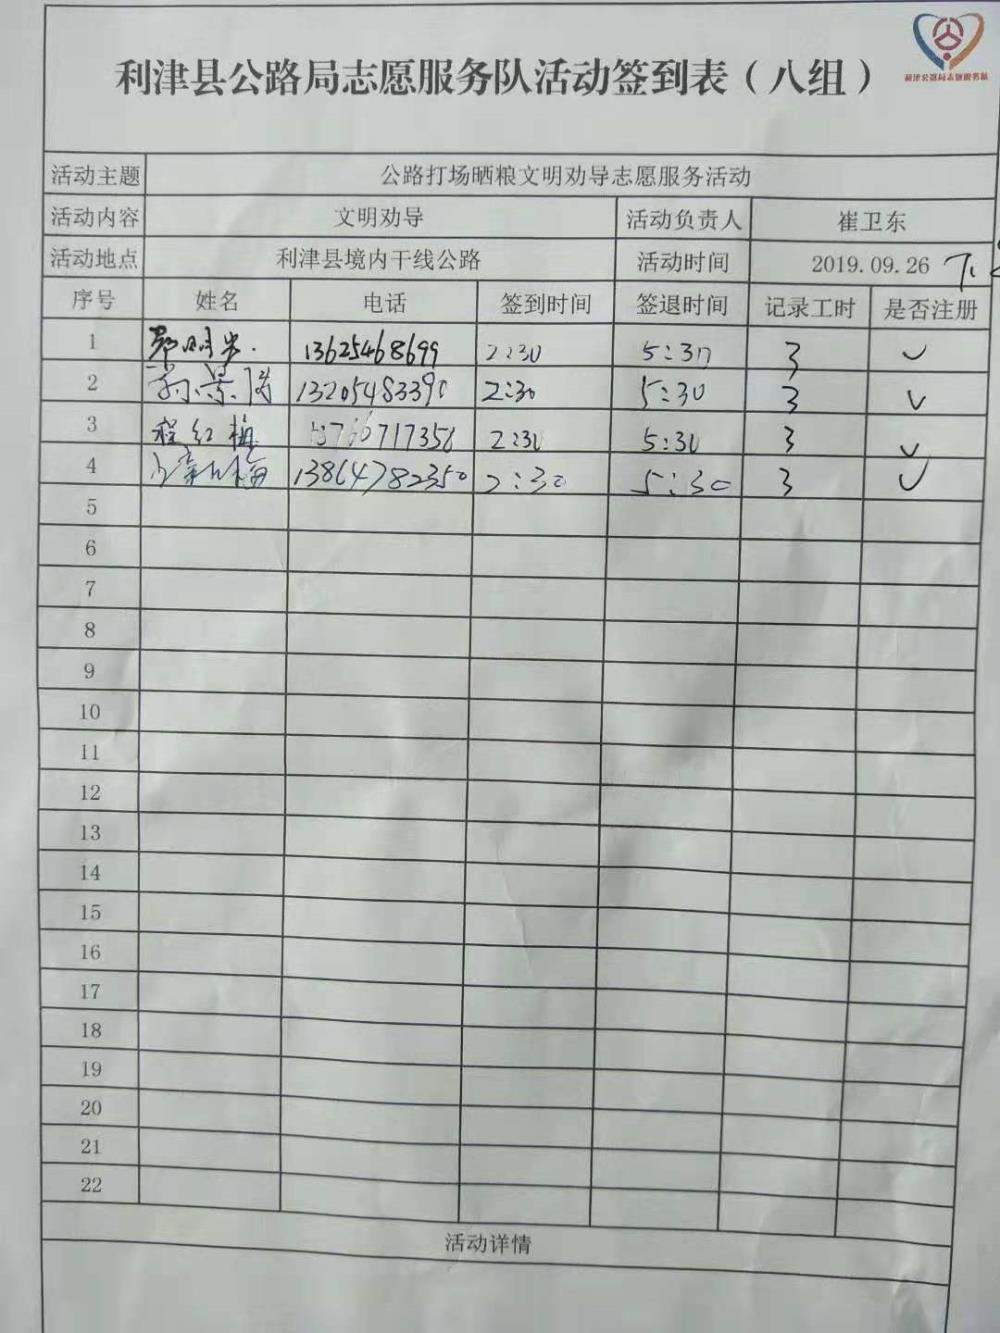 利津县公路局志愿服务队
利津县公路局志愿服务队活动签到表（八组）
活动主题 公路打场晒粮文明劝导志愿服务活动
活动内容 文明劝导 活动负责人 崔卫东
活动地点 利津县境内干线公路 活动时间 2019.09.26
序号 姓名 电话 签到时间 签退时间 记录工时 是否注册
1 13625468699 2:30 5:30 3 ✓
2 13205483390 2:30 5:30 3 ✓
3 程红梅 2:30 5:30 3 ✓
4 13864782350 2:30 5:30 3 ✓
5
6
7
8
9
10
11
12
13
14
15
16
17
18
19
20
21
22
活动详情